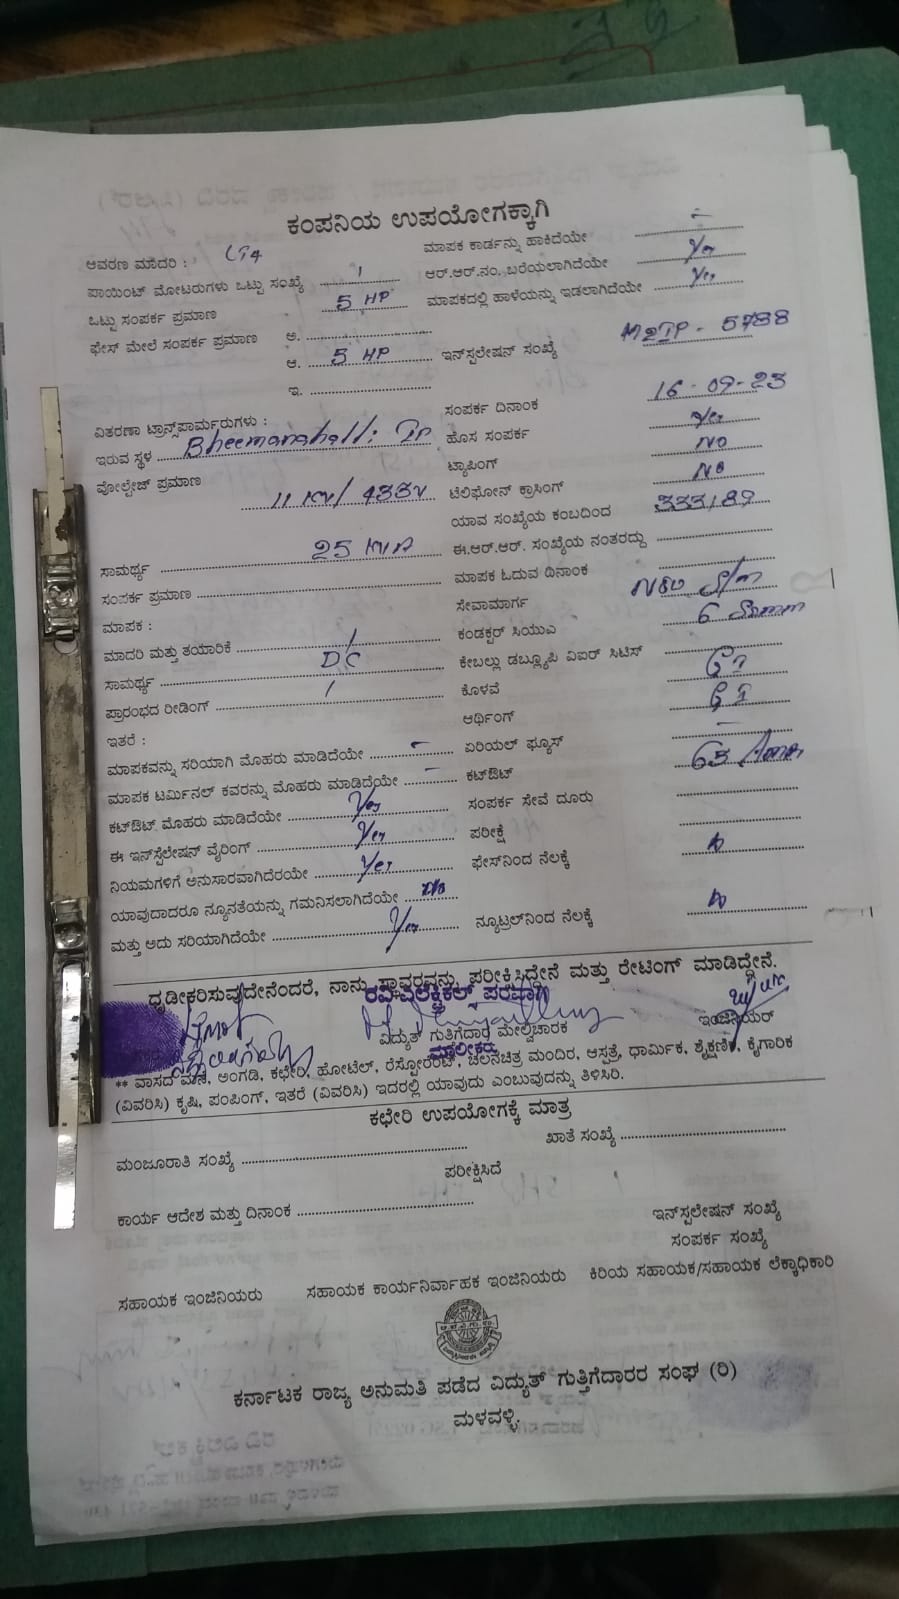 ಕಂಪನಿಯ ಉಪಯೋಗಕ್ಕಾಗಿ
ಆವರಣ ಮಾದರಿ : LT4
ಮಾಪಕ ಕಾರ್ಡನ್ನು ಹಾಕಿದೆಯೇ –
ಪಾಯಿಂಟ್ ಮೋಟರುಗಳು ಒಟ್ಟು ಸಂಖ್ಯೆ 1
ಆರ್.ಆರ್.ನಂ. ಬರೆಯಲಾಗಿದೆಯೇ Yes
ಒಟ್ಟು ಸಂಪರ್ಕ ಪ್ರಮಾಣ 5 HP
ಮಾಪಕದಲ್ಲಿ ಹಾಳೆಯನ್ನು ಇಡಲಾಗಿದೆಯೇ Yes
ಫೇಸ್ ಮೇಲೆ ಸಂಪರ್ಕ ಪ್ರಮಾಣ ಅ.
ಆ. 5 HP
ಇನ್‌ಸ್ಪಲೇಷನ್ ಸಂಖ್ಯೆ M2IP - 5788
ಇ.
ಸಂಪರ್ಕ ದಿನಾಂಕ 16-09-23
ವಿತರಣಾ ಟ್ರಾನ್ಸ್‌ಪಾರ್ಮರುಗಳು :
ಇರುವ ಸ್ಥಳ Bheemanahalli
ಹೊಸ ಸಂಪರ್ಕ Yes
ವೋಲ್ಟೇಜ್ ಪ್ರಮಾಣ 11 KV/433V
ಟ್ಯಾಪಿಂಗ್ NO
ಟೆಲಿಫೋನ್ ಕ್ರಾಸಿಂಗ್ NO
ಯಾವ ಸಂಖ್ಯೆಯ ಕಂಬದಿಂದ 333189
ಸಾಮರ್ಥ್ಯ 25 KVA
ಈ.ಆರ್.ಆರ್. ಸಂಖ್ಯೆಯ ನಂತರದ್ದು
ಸಂಪರ್ಕ ಪ್ರಮಾಣ
ಮಾಪಕ ಓದುವ ದಿನಾಂಕ
ಮಾಪಕ :
ಸೇವಾಮಾರ್ಗ
ಮಾದರಿ ಮತ್ತು ತಯಾರಿಕೆ /
ಕಂಡಕ್ಟರ್ ಸಿಯುಎ 6
ಸಾಮರ್ಥ್ಯ DC
ಕೇಬಲ್ಲು ಡಬ್ಲ್ಯೂಪಿ ವಿಐರ್ ಸಿಟಿಸ್
ಪ್ರಾರಂಭದ ರೀಡಿಂಗ್ /
ಕೊಳವೆ GI
ಇತರೆ :
ಆರ್ಥಿಂಗ್ GI
ಮಾಪಕವನ್ನು ಸರಿಯಾಗಿ ಮೊಹರು ಮಾಡಿದೆಯೇ –
ಏರಿಯಲ್ ಫ್ಯೂಸ್ –
ಮಾಪಕ ಟರ್ಮಿನಲ್ ಕವರನ್ನು ಮೊಹರು ಮಾಡಿದೆಯೇ –
ಕಟ್‌ಔಟ್ 63 Amp
ಕಟ್‌ಔಟ್ ಮೊಹರು ಮಾಡಿದೆಯೇ Yes
ಸಂಪರ್ಕ ಸೇವೆ ದೂರು
ಈ ಇನ್‌ಸ್ಪೆಲೇಷನ್ ವೈರಿಂಗ್ Yes
ಪರೀಕ್ಷೆ
ನಿಯಮಗಳಿಗೆ ಅನುಸಾರವಾಗಿದೆರಯೇ Yes
ಫೇಸ್‌ನಿಂದ ನೆಲಕ್ಕೆ
ಯಾವುದಾದರೂ ನ್ಯೂನತೆಯನ್ನು ಗಮನಿಸಲಾಗಿದೆಯೇ No
ಮತ್ತು ಅದು ಸರಿಯಾಗಿದೆಯೇ Yes
ನ್ಯೂಟ್ರಲ್‌ನಿಂದ ನೆಲಕ್ಕೆ
ಧೃಡೀಕರಿಸುವುದೇನೆಂದರೆ, ನಾನು ಸ್ಥಾವರವನ್ನು ಪರೀಕ್ಷಿಸಿದ್ದೇನೆ ಮತ್ತು ರೇಟಿಂಗ್ ಮಾಡಿದ್ದೇನೆ.
ವಿದ್ಯುತ್ ಗುತ್ತಿಗೆದಾರ ಮೇಲ್ವಿಚಾರಕ ಇಂಜಿನಿಯರ್
ಮಾಲೀಕರು
** ವಾಸದ ಮನೆ, ಅಂಗಡಿ, ಕಛೇರಿ, ಹೋಟೆಲ್, ರೆಸ್ಟೋರೆಂಟ್, ಚಲನಚಿತ್ರ ಮಂದಿರ, ಆಸ್ಪತ್ರೆ, ಧಾರ್ಮಿಕ, ಶೈಕ್ಷಣಿಕ, ಕೈಗಾರಿಕ
(ವಿವರಿಸಿ) ಕೃಷಿ, ಪಂಪಿಂಗ್, ಇತರೆ (ವಿವರಿಸಿ) ಇದರಲ್ಲಿ ಯಾವುದು ಎಂಬುವುದನ್ನು ತಿಳಿಸಿರಿ.
ಕಛೇರಿ ಉಪಯೋಗಕ್ಕೆ ಮಾತ್ರ
ಮಂಜೂರಾತಿ ಸಂಖ್ಯೆ ಖಾತೆ ಸಂಖ್ಯೆ
ಪರೀಕ್ಷಿಸಿದೆ
ಕಾರ್ಯ ಆದೇಶ ಮತ್ತು ದಿನಾಂಕ
ಇನ್‌ಸ್ಪಲೇಷನ್ ಸಂಖ್ಯೆ
ಸಂಪರ್ಕ ಸಂಖ್ಯೆ
ಸಹಾಯಕ ಇಂಜಿನಿಯರು ಸಹಾಯಕ ಕಾರ್ಯನಿರ್ವಾಹಕ ಇಂಜಿನಿಯರು ಕಿರಿಯ ಸಹಾಯಕ/ಸಹಾಯಕ ಲೆಕ್ಕಾಧಿಕಾರಿ
ಕರ್ನಾಟಕ ರಾಜ್ಯ ಅನುಮತಿ ಪಡೆದ ವಿದ್ಯುತ್ ಗುತ್ತಿಗೆದಾರರ ಸಂಘ (ರಿ)
ಮಳವಳ್ಳಿ.